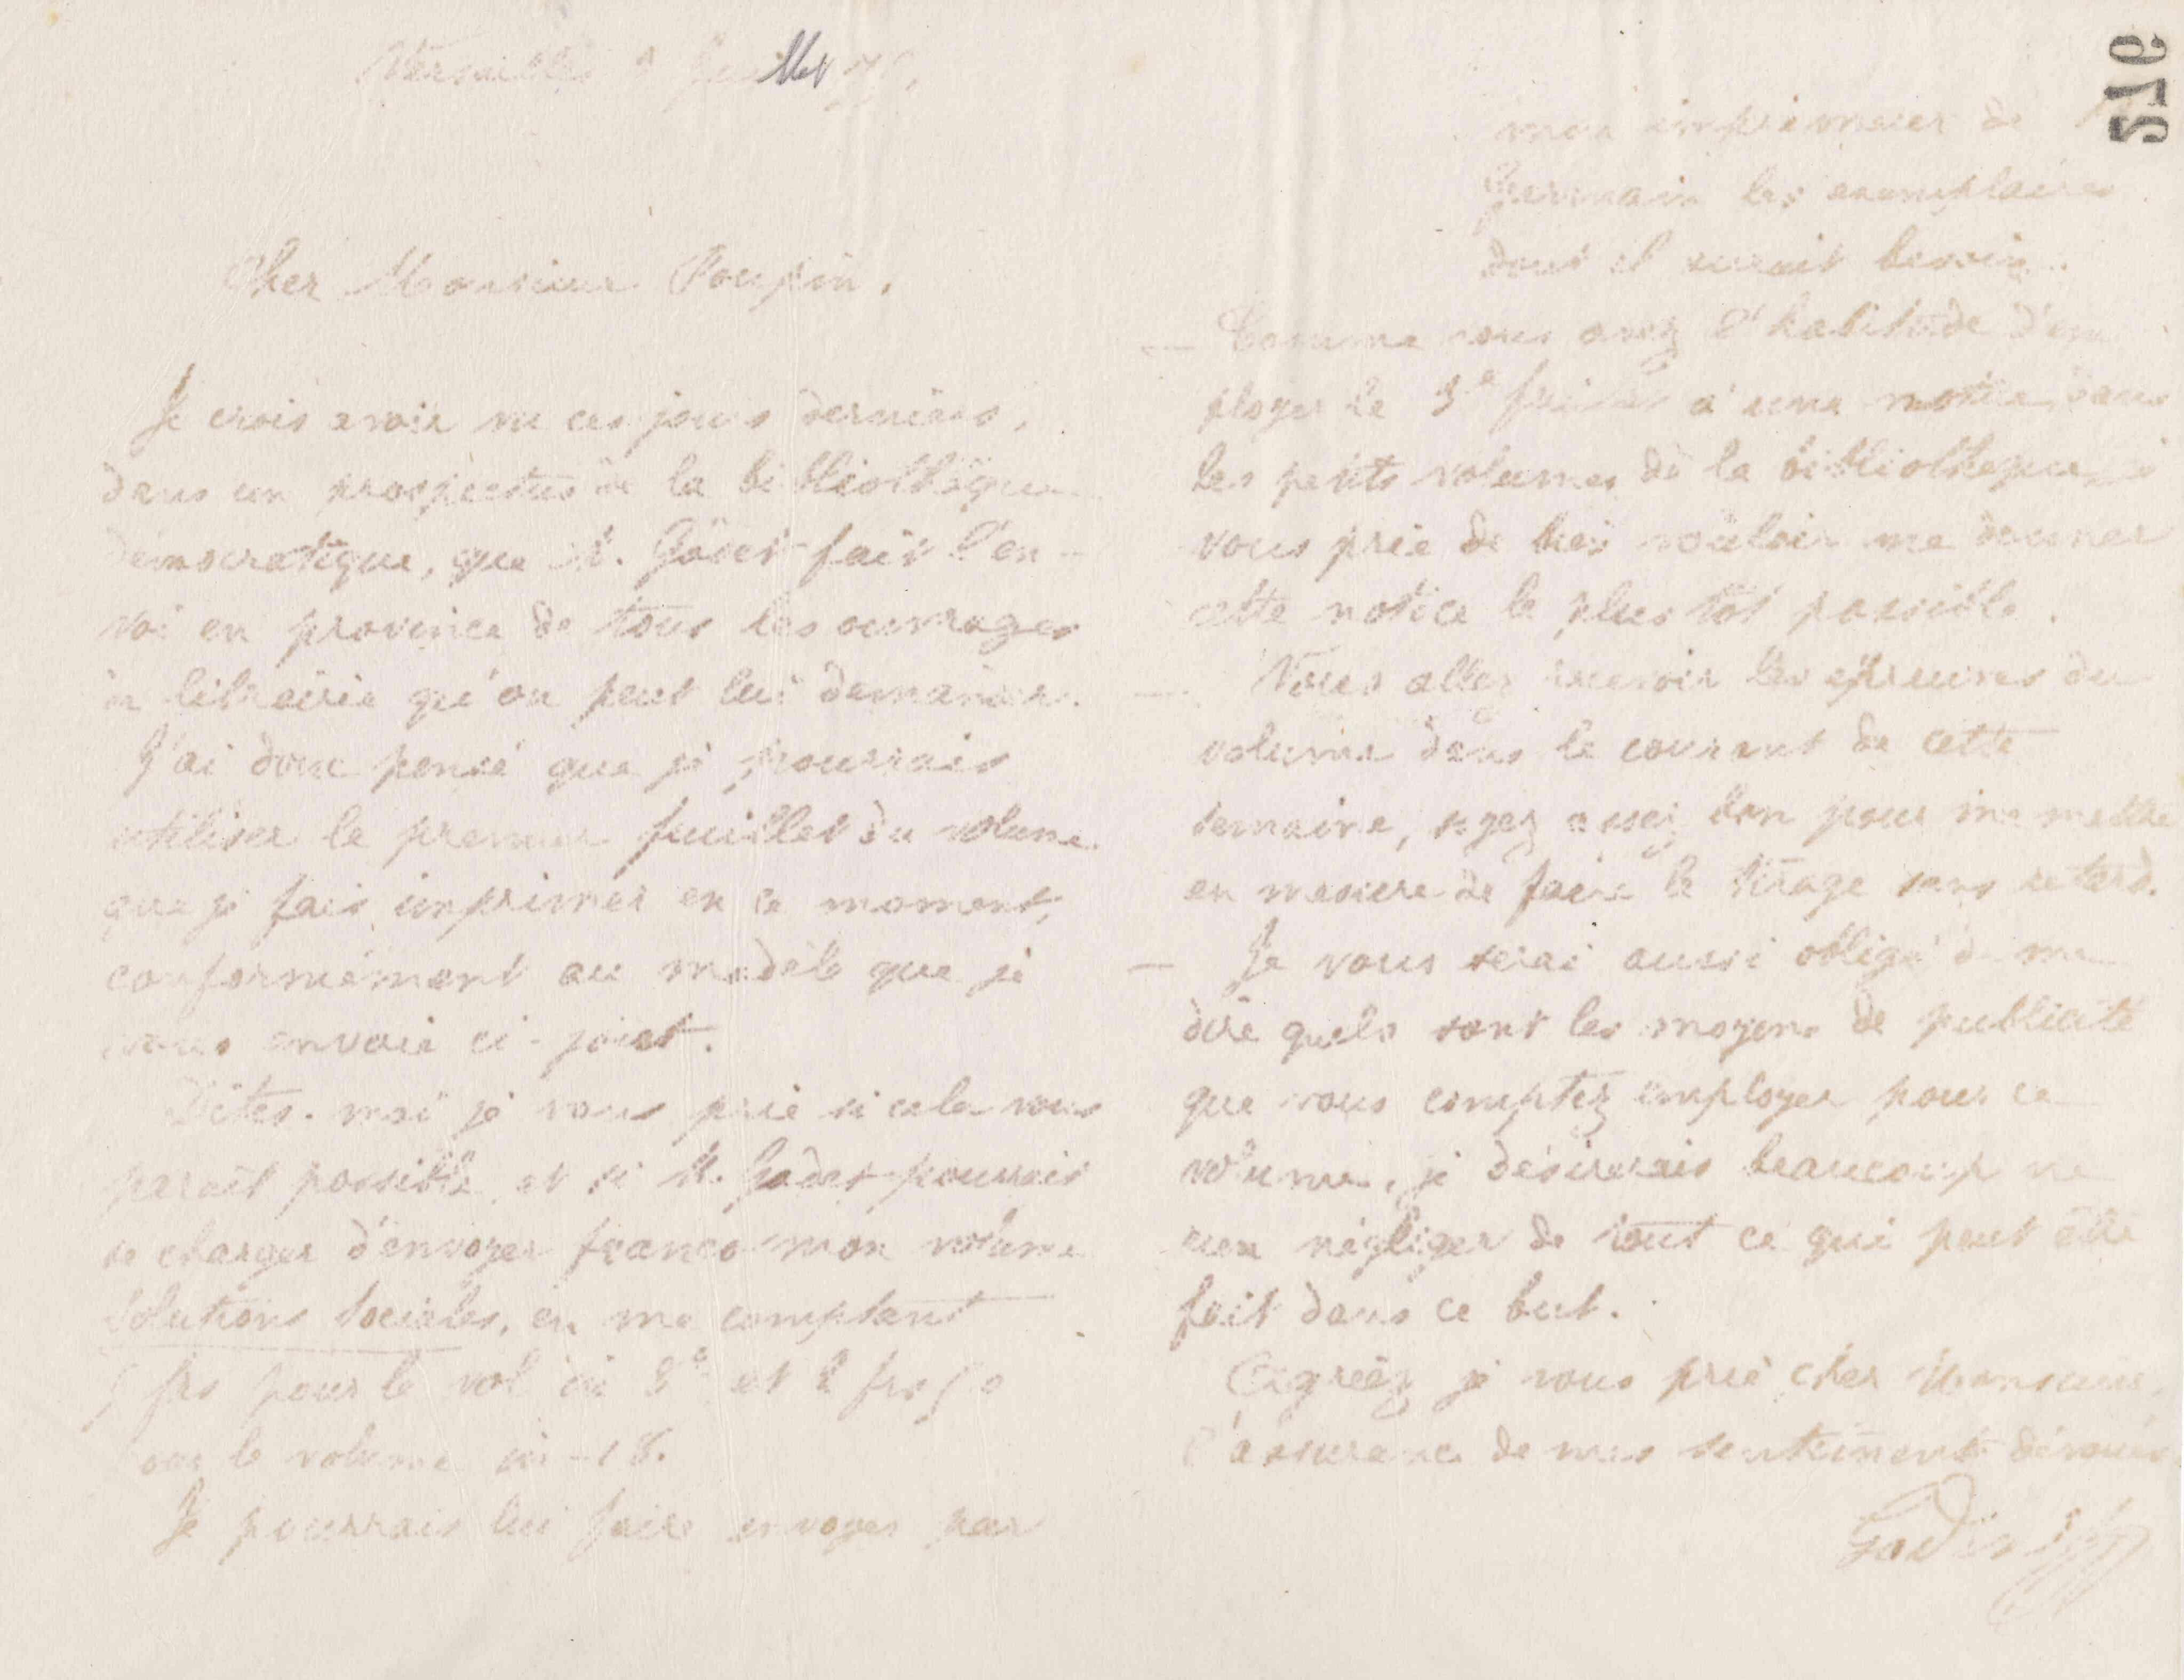 Versailles 9 Juillet
Cher Monsieur Poupin,
Je crois avoir vu ces jours derniers,
dans un prospectus de la bibliothèque
démocratique, que M. Godet fait l'en-
voi en province de tous les ouvrages
de librairie qu'on peut lui demander.
J'ai donc pensé que je pourrais
utiliser le premier feuillet du volume
que je fais imprimer en ce moment,
conformément au modèle que je
vous envoie ci-joint.
Dites-moi je vous prie si cela vous
paraît possible et si M. Godet pourrait
se charger d'envoyer franco mon volume
Solutions Sociales, en me comptant
5 frs pour le vol in 8° et 2 frs 50
pour le volume in-18.
Je pourrais lui faire envoyer par
516
mon imprimeur de St
Germain les exemplaires
dont il aurait besoin.
— Comme vous avez l'habitude d'em
ployer le 3e feuillet à une notice, dans
les petits volumes de la bibliothèque, je
vous prie de bien vouloir me donner
cette notice le plus tôt possible.
— Vous allez recevoir les épreuves du
volume dans le courant de cette
semaine, soyez assez bon pour me mettre
en mesure de faire le tirage sans retard.
— Je vous serai aussi obligé de me
dire quels sont les moyens de publicité
que vous comptez employer pour ce
volume, je désirerais beaucoup ne
rien négliger de tout ce qui peut être
fait dans ce but.
Agréez je vous prie cher Monsieur,
l'assurance de mes sentiments dévoués
Godin